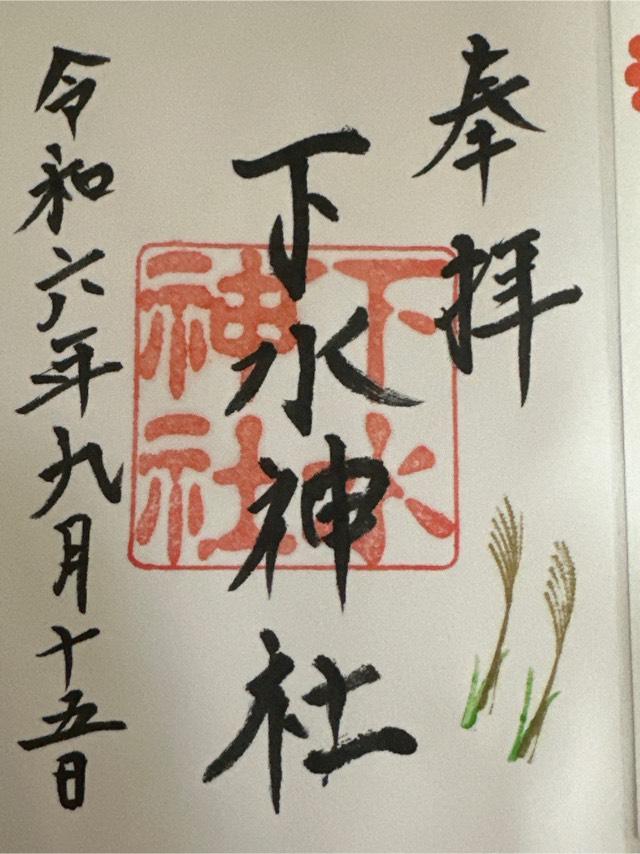 奉拝
下水神社
下水
神社
令和六年九月十五日